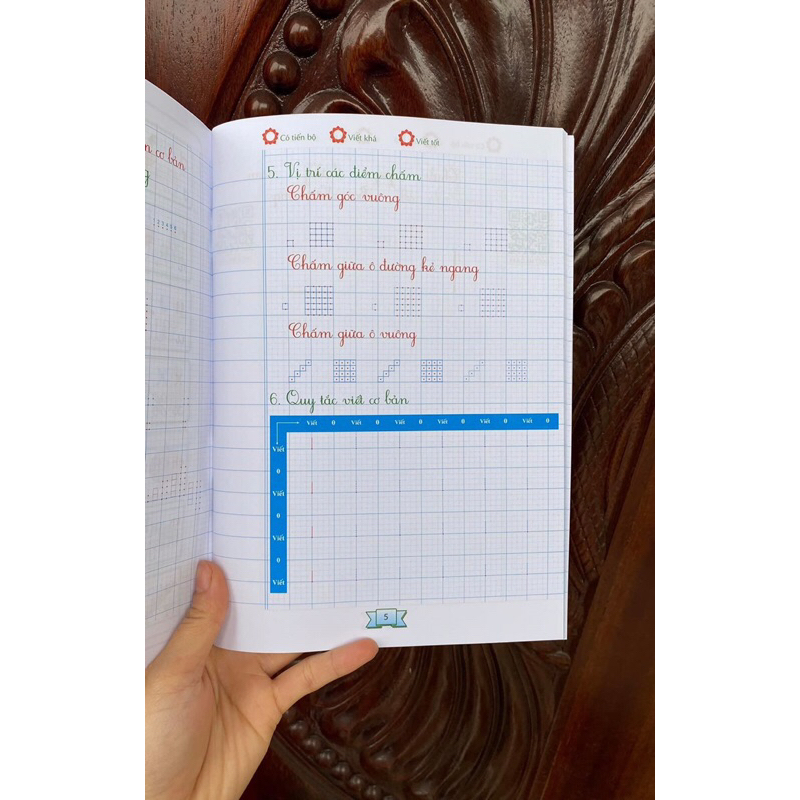 n cơ bản
g
Có tiến bộ Viết khá Viết tốt
5. Vị trí các điểm chấm
Chấm góc vuông
Chấm giữa ô đường kẻ ngang
Chấm giữa ô vuông
6. Quy tắc viết cơ bản
Viết 0 Viết 0 Viết 0 Viết 0 Viết 0 Viết 0
Viết
0
Viết
0
Viết
0
Viết
5